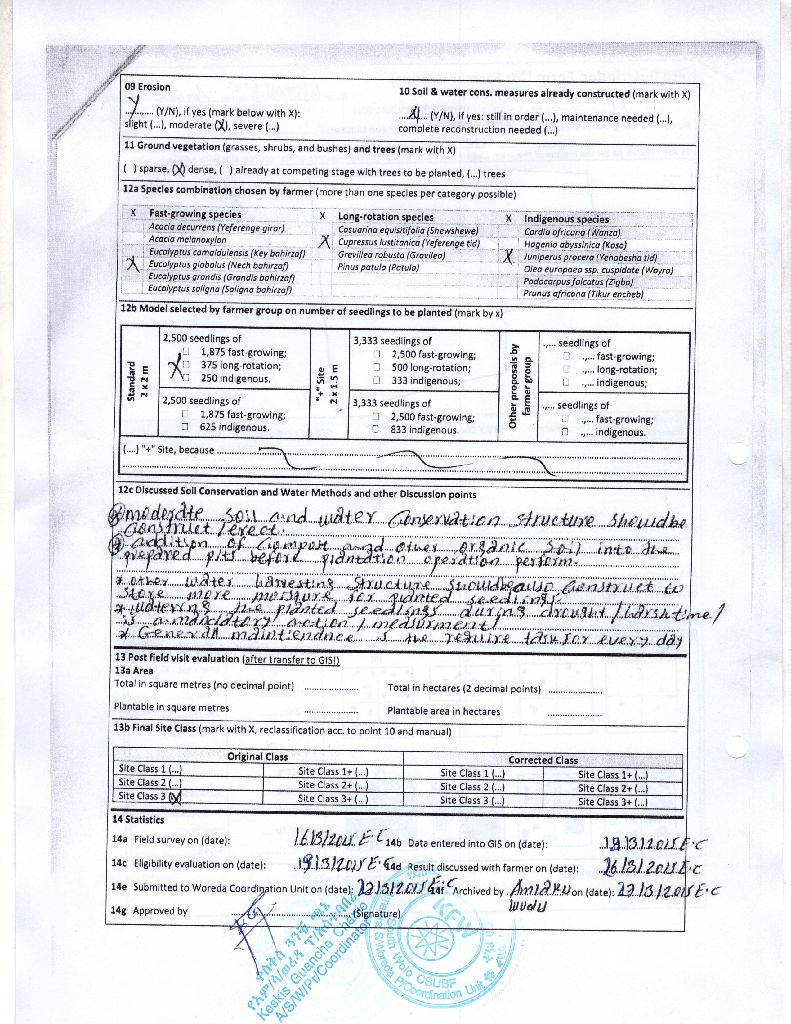 09 Erosion
Y (Y/N), if yes (mark below with X):
slight (...), moderate (X), severe (...)
10 Soil & water cons. measures already constructed (mark with X)
(Y/N), if yes: still in order (...), maintenance needed (...),
complete reconstruction needed (...)
11 Ground vegetation (grasses, shrubs, and bushes) and trees (mark with X)
( ) sparse, (X) dense, ( ) already at competing stage with trees to be planted, (...) trees
12a Species combination chosen by farmer (more than one species per category possible)
X Fast-growing species
Acacia decurrens (Yeferenge girar)
Acacia melanoxylon
Eucalyptus camaldulensis (Key bahirzaf)
X Eucalyptus globolus (Nech bahirzaf)
Eucalyptus grandis (Grandis bahirzaf)
Eucalyptus saligna (Saligna bahirzaf)
X Long-rotation species
Casuarina equisitifolia (Shewshewe)
X Cupressus lustitanica (Yeferenge tid)
Grevillea robusta (Gravilea)
Pinus patula (Patula)
X Indigenous species
Cordia africana (Wanza)
Hagenia abyssinica (Koso)
X Juniperus procera (Yehabesha tid)
Olea europaea ssp. cuspidate (Wayra)
Podocarpus falcatus (Zigba)
Prunus africana (Tikur encheb)
12b Model selected by farmer group on number of seedlings to be planted (mark by x)
Standard
2 x 2 m
2,500 seedlings of
1,875 fast-growing;
X 375 long-rotation;
250 indigenous.
2,500 seedlings of
1,875 fast-growing;
625 indigenous.
"+" Site
2 x 1.5 m
3,333 seedlings of
2,500 fast-growing;
500 long-rotation;
333 indigenous;
3,333 seedlings of
2,500 fast-growing;
833 indigenous.
Other proposals by
farmer group
.,... seedlings of
.,... fast-growing;
.,... long-rotation;
.,... indigenous;
.,... seedlings of
.,... fast-growing;
.,... indigenous.
(....) "+" Site, because
12c Discussed Soil Conservation and Water Methods and other Discussion points
moderate soil and water Conservation structure shouldbe
construct /erect.
addition of Compost and other organic soil into the
prepared pits before plantation operation perform.
* other water harvesting structure shouldbealso Construct to
store more moisture for planted seedlings.
* watering the planted seedlings during drought / harsh time /
is a mandatory action / measurment /
* General maintiendnce is the require task for every day
13 Post field visit evaluation (after transfer to GIS!)
13a Area
Total in square metres (no decimal point) .................... Total in hectares (2 decimal points) ....................
Plantable in square metres .................... Plantable area in hectares ....................
13b Final Site Class (mark with X, reclassification acc. to point 10 and manual)
Original Class Corrected Class
Site Class 1 (...) Site Class 1+ (...) Site Class 1 (...) Site Class 1+ (...)
Site Class 2 (...) Site Class 2+ (...) Site Class 2 (...) Site Class 2+ (...)
Site Class 3 (X) Site Class 3+ (...) Site Class 3 (...) Site Class 3+ (...)
14 Statistics
14a Field survey on (date): 16/3/2015 E.C 14b Data entered into GIS on (date): 19/3/2015 E.C
14c Eligibility evaluation on (date): 19/3/2015 E.C 14d Result discussed with farmer on (date): 26/3/2015 E.C
14e Submitted to Woreda Coordination Unit on (date): 27/3/2015 E.C 14f Archived by on (date): 27/3/2015 E.C
14g Approved by (Signature)
Keskis Guanche Chade
A/S/W/Pr/Coordinator
KFW
CSUBF
South Wolo
P/Coordination Unit